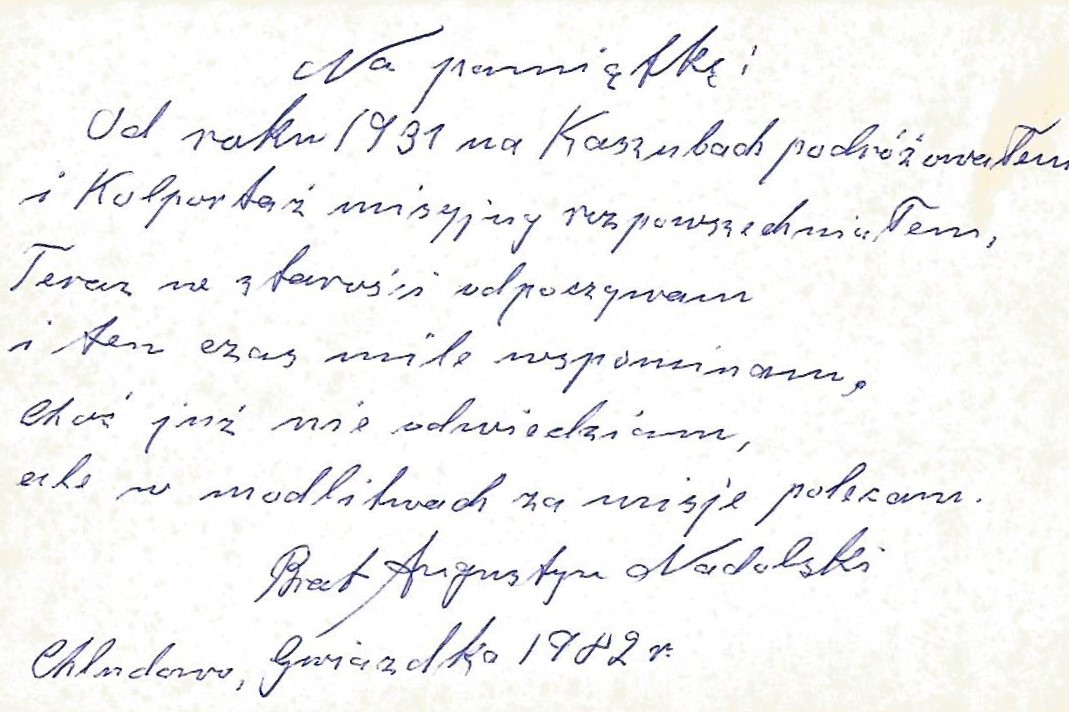 Na pamiątkę!
Od roku 1931 na Kaszubach podróżowałem
i Kolportaż misyjny rozpowszechniałem,
Teraz we starości odpoczywam
i ten czas mile wspominam,
Choć już nie odwiedzam,
ale w modlitwach za misje polecam.
Brat Augustyn Nadolski
Chludowo, Gwiazdka 1982 r.